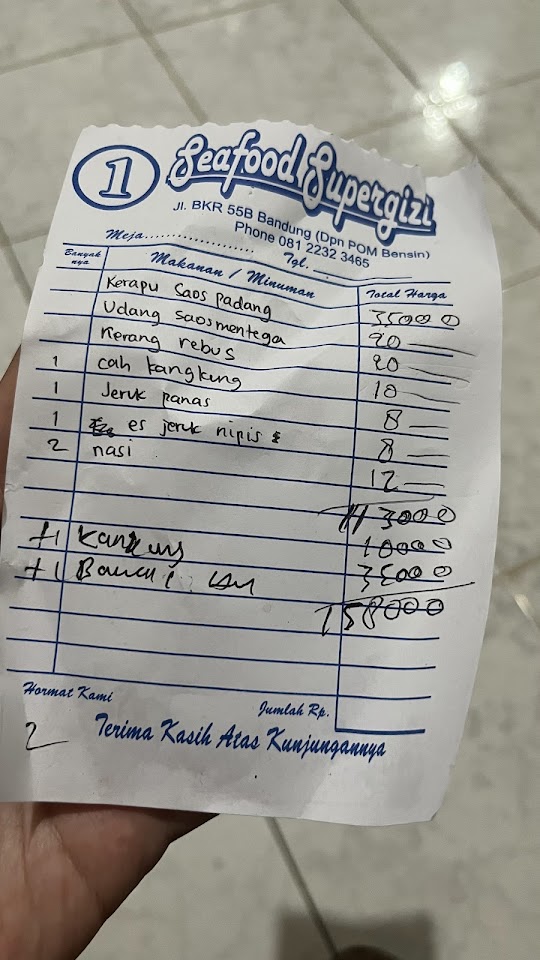 1
Seafood Supergizi
Jl. BKR 55B Bandung (Dpn POM Bensin)
Phone 081 2232 3465
Meja.................... Tgl. 
Banyak nya Makanan / Minuman Total Harga
Kerapu saos padang 35000
Udang saos mentega 20
Kerang rebus 20
1 cah kangkung 10
1 Jeruk panas 8
1 es jeruk nipis 8
2 nasi 12
113000
+1 Kangkung 10000
+1 35000
158000
Hormat Kami Jumlah Rp.
2 Terima Kasih Atas Kunjungannya